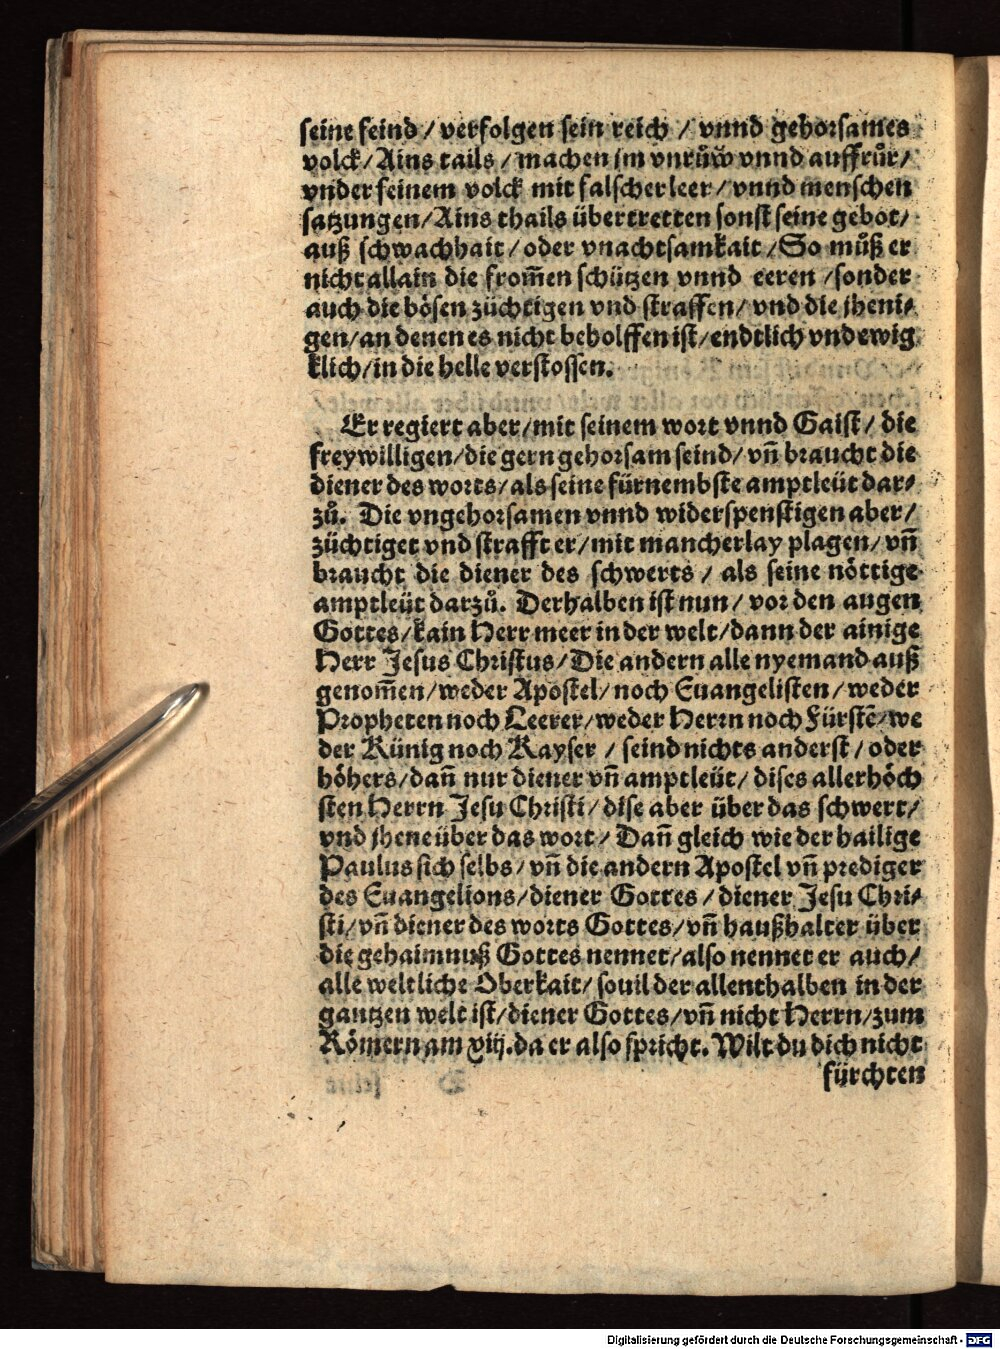 seine feind / verfolgen sein reich / vnnd gehorsames
volck / Ains tails / machen jm vnrůw vnnd auffrůr /
vnder seinem volck mit falscher leer / vnnd menschen
satzungen / Ains thails übertretten sonst seine gebot /
auß schwachhait / oder vnachtsamkait / So můß er
nicht allain die from̄en schützen vnnd eeren / sonder
auch die bösen züchtigen vnd straffen / vnd die jheni⸗
gen / an denen es nicht beholffen ist / endtlich vnd ewig
klich / in die helle verstossen.
Er regiert aber / mit seinem wort vnnd Gaist / die
freywilligen / die gern gehorsam seind / vn̄ braucht die
diener des worts / als seine fürnembste amptleüt dar⸗
zů. Die vngehorsamen vnnd widerspenstigen aber /
züchtiget vnd strafft er / mit mancherlay plagen / vn̄
braucht die diener des schwerts / als seine nöttige
amptleüt darzů. Derhalben ist nun / vor den augen
Gottes / kain Herr meer in der welt / dann der ainige
Herr Jesus Christus / Die andern alle nyemand auß
genom̄en / weder Apostel / noch Euangelisten / weder
Propheten noch Leerer / weder Herrn noch Fürstē / we
der Künig noch Kayser / seind nichts anderst / oder
höhers / dan̄ nur diener vn̄ amptleüt / dises allerhöch
sten Herrn Jesu Christi / dise aber über das schwert /
vnd jhene über das wort / Dan̄ gleich wie der hailige
Paulus sich selbs / vn̄ die andern Apostel vn̄ prediger
des Euangelions / diener Gottes / diener Jesu Chri⸗
sti / vn̄ diener des worts Gottes / vn̄ haußhalter über
die gehaimnuß Gottes nennet / also nennet er auch /
alle weltliche Oberkait / souil der allenthalben in der
gantzen welt ist / diener Gottes / vn̄ nicht Herrn / zum
Römern am xiij. da er also spricht. Wilt du dich nicht
fürchten
Digitalisierung gefördert durch die Deutsche Forschungsgemeinschaft - DFG